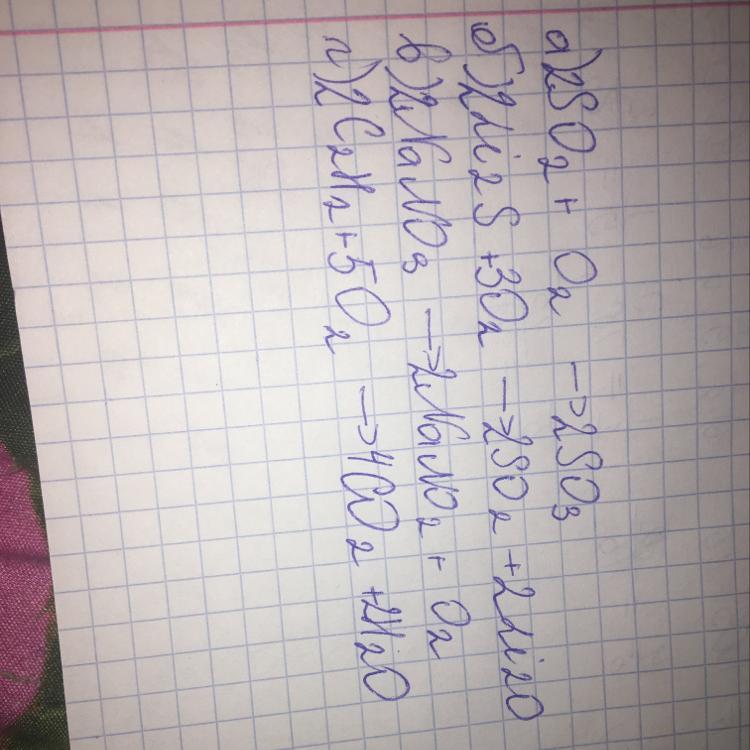 а) 2SO₂ + O₂ → 2SO₃
б) 2Li₂S + 3O₂ → 2SO₂ + 2Li₂O
в) 2NaNO₃ → 2NaNO₂ + O₂
г) 2C₂H₂ + 5O₂ → 4CO₂ + 2H₂O